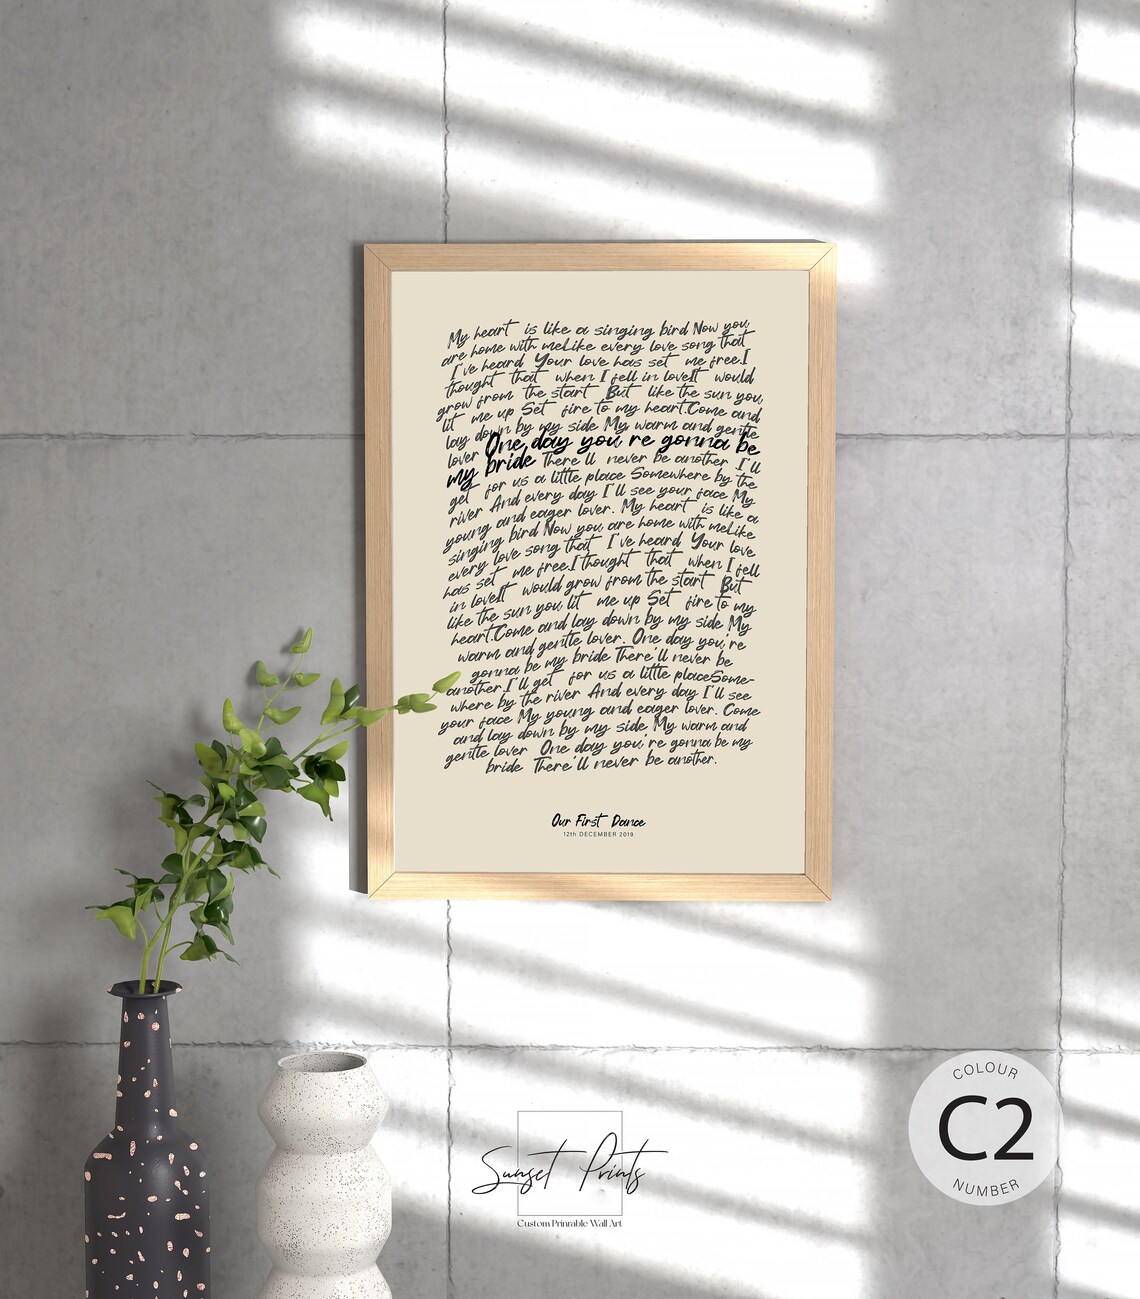 My heart is like a singing bird Now you,
are home with meLike every love song that
I've heard Your love has set me free.I
thought that when I fell in loveIt would
grow from the start But like the sun you,
lit me up Set fire to my heart.Come and
lay down by my side My warm and gentle
lover One day you're gonna be
my bride There'll never be another I'll
get for us a little place Somewhere by the
river And every day I'll see your face My
young and eager lover. My heart is like a
singing bird Now you, are home with meLike
every love song that I've heard Your love
has set me free.I thought that when I fell
in loveIt would grow from the start But
like the sun you, lit me up Set fire to my
heart.Come and lay down by my side My
warm and gentle lover. One day you're
gonna be my bride There'll never be
another.I'll get for us a little placeSome-
where by the river And every day I'll see
your face My young and eager lover. Come
and lay down by my side My warm and
gentle lover One day you're gonna be my
bride There'll never be another.
Our First Dance
12th DECEMBER 2019
COLOUR
C2
NUMBER
Sunset Prints
Custom Prinrable Wall Art